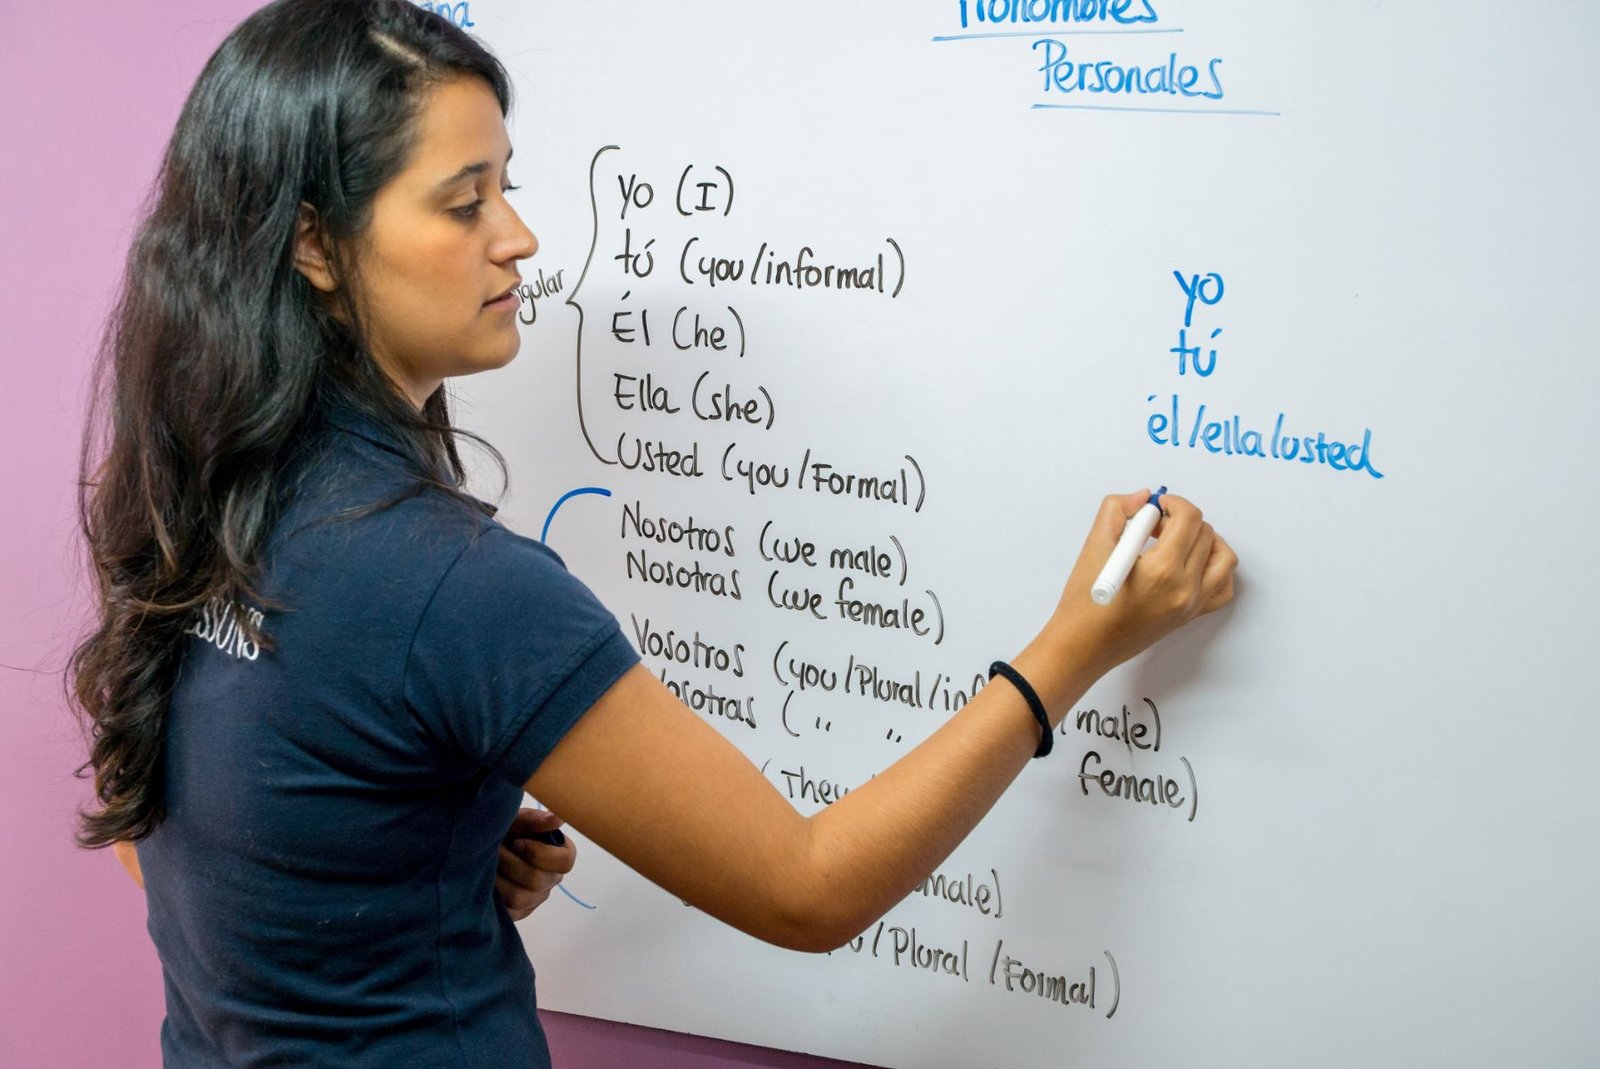 Pronombres
Personales
yo (I)
tú (you/informal)
Él (he)
Ella (she)
Usted (you/Formal)
Nosotros (we male)
Nosotras (we female)
Vosotros (you/Plural/ male)
( " " female)
(They
/Plural/Formal)
yo
tú
él/ella/usted